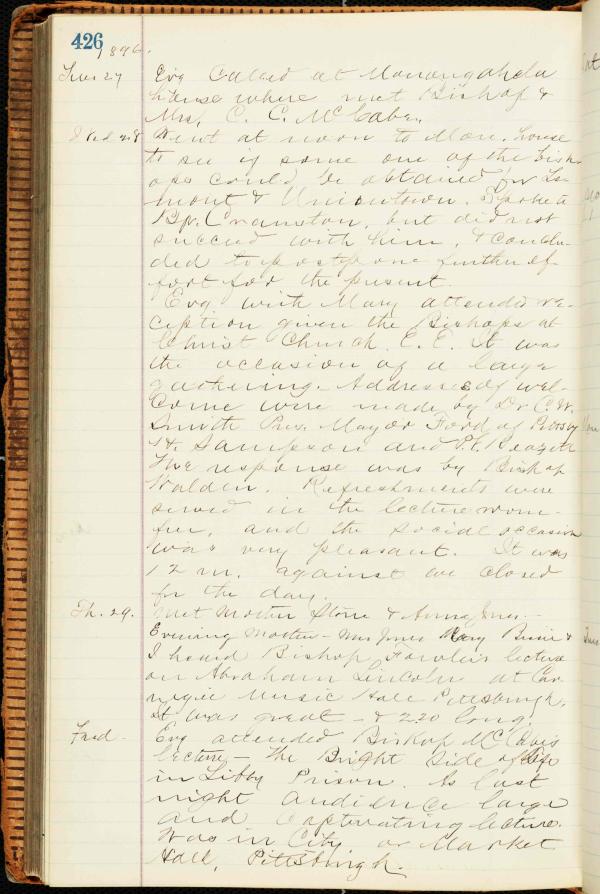 426
1896.
Tues 27 Evg Called at Monongahela
house where met Bishop &
Mrs. C. C. McCabe.
Wed 28 Went at noon to Mon. house
to see if some one of the Bish-
ops could be obtained for Le-
mont & Uniontown. Spoke to
Bp. Cranston, but did not
succeed with him, & conclu-
ded to postpone further ef-
fort for the present.
Evg with Mary attended re-
ception given the Bishops at
Christ Church E. E. It was
the occasion of a large
gathering. Addresses of wel-
come were made by Dr C. W.
Smith Mayor Ford of Pittsbg
H. Sampson and
The response was by Bishop
Walden. Refreshments were
served in the lecture room-
and the social occasion
was very pleasant. It was
12 m. against we closed
for the day.
Th. 29. Met Mother Stone & Anna Jones
Evening Mother - Mrs Jones Mary &
I heard Bishop Fowler's lecture
on Abraham Lincoln at Car-
negie Music Hall Pittsburgh.
It was great - & 2.20 long!
Evg attended Bishop McCabe's
lecture - The Bright Side of Life
in Libby Prison. As last
night audience large
and captivating lecture.
Was in City or Market
Hall, Pittsburgh.